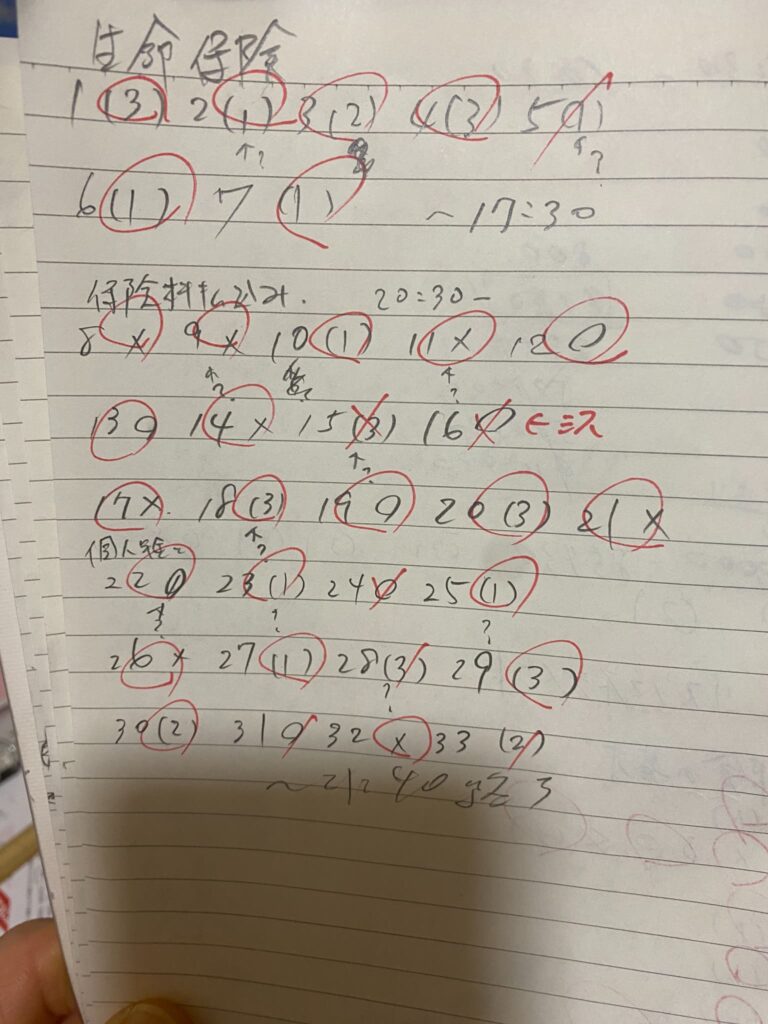 生命保険
1 (3) 2 (1) 3 (2) 4 (3) 5 (1)
↑? ↑?
6 (1) 7 (1) ~17:30
保険料 20:30-
8 × 9 × 10 (1) 11 × 12 ○
↑? ↑?
13 ○ 14 × 15 (3) 16 ○ ←ミス
↑?
17 × 18 (3) 19 ○ 20 (3) 21 ×
↑?
個人
22 ○ 23 (1) 24 ○ 25 (1)
↑? ? ?
26 × 27 (1) 28 (3) 29 (3)
?
30 (2) 31 ○ 32 × 33 (2)
~21:40